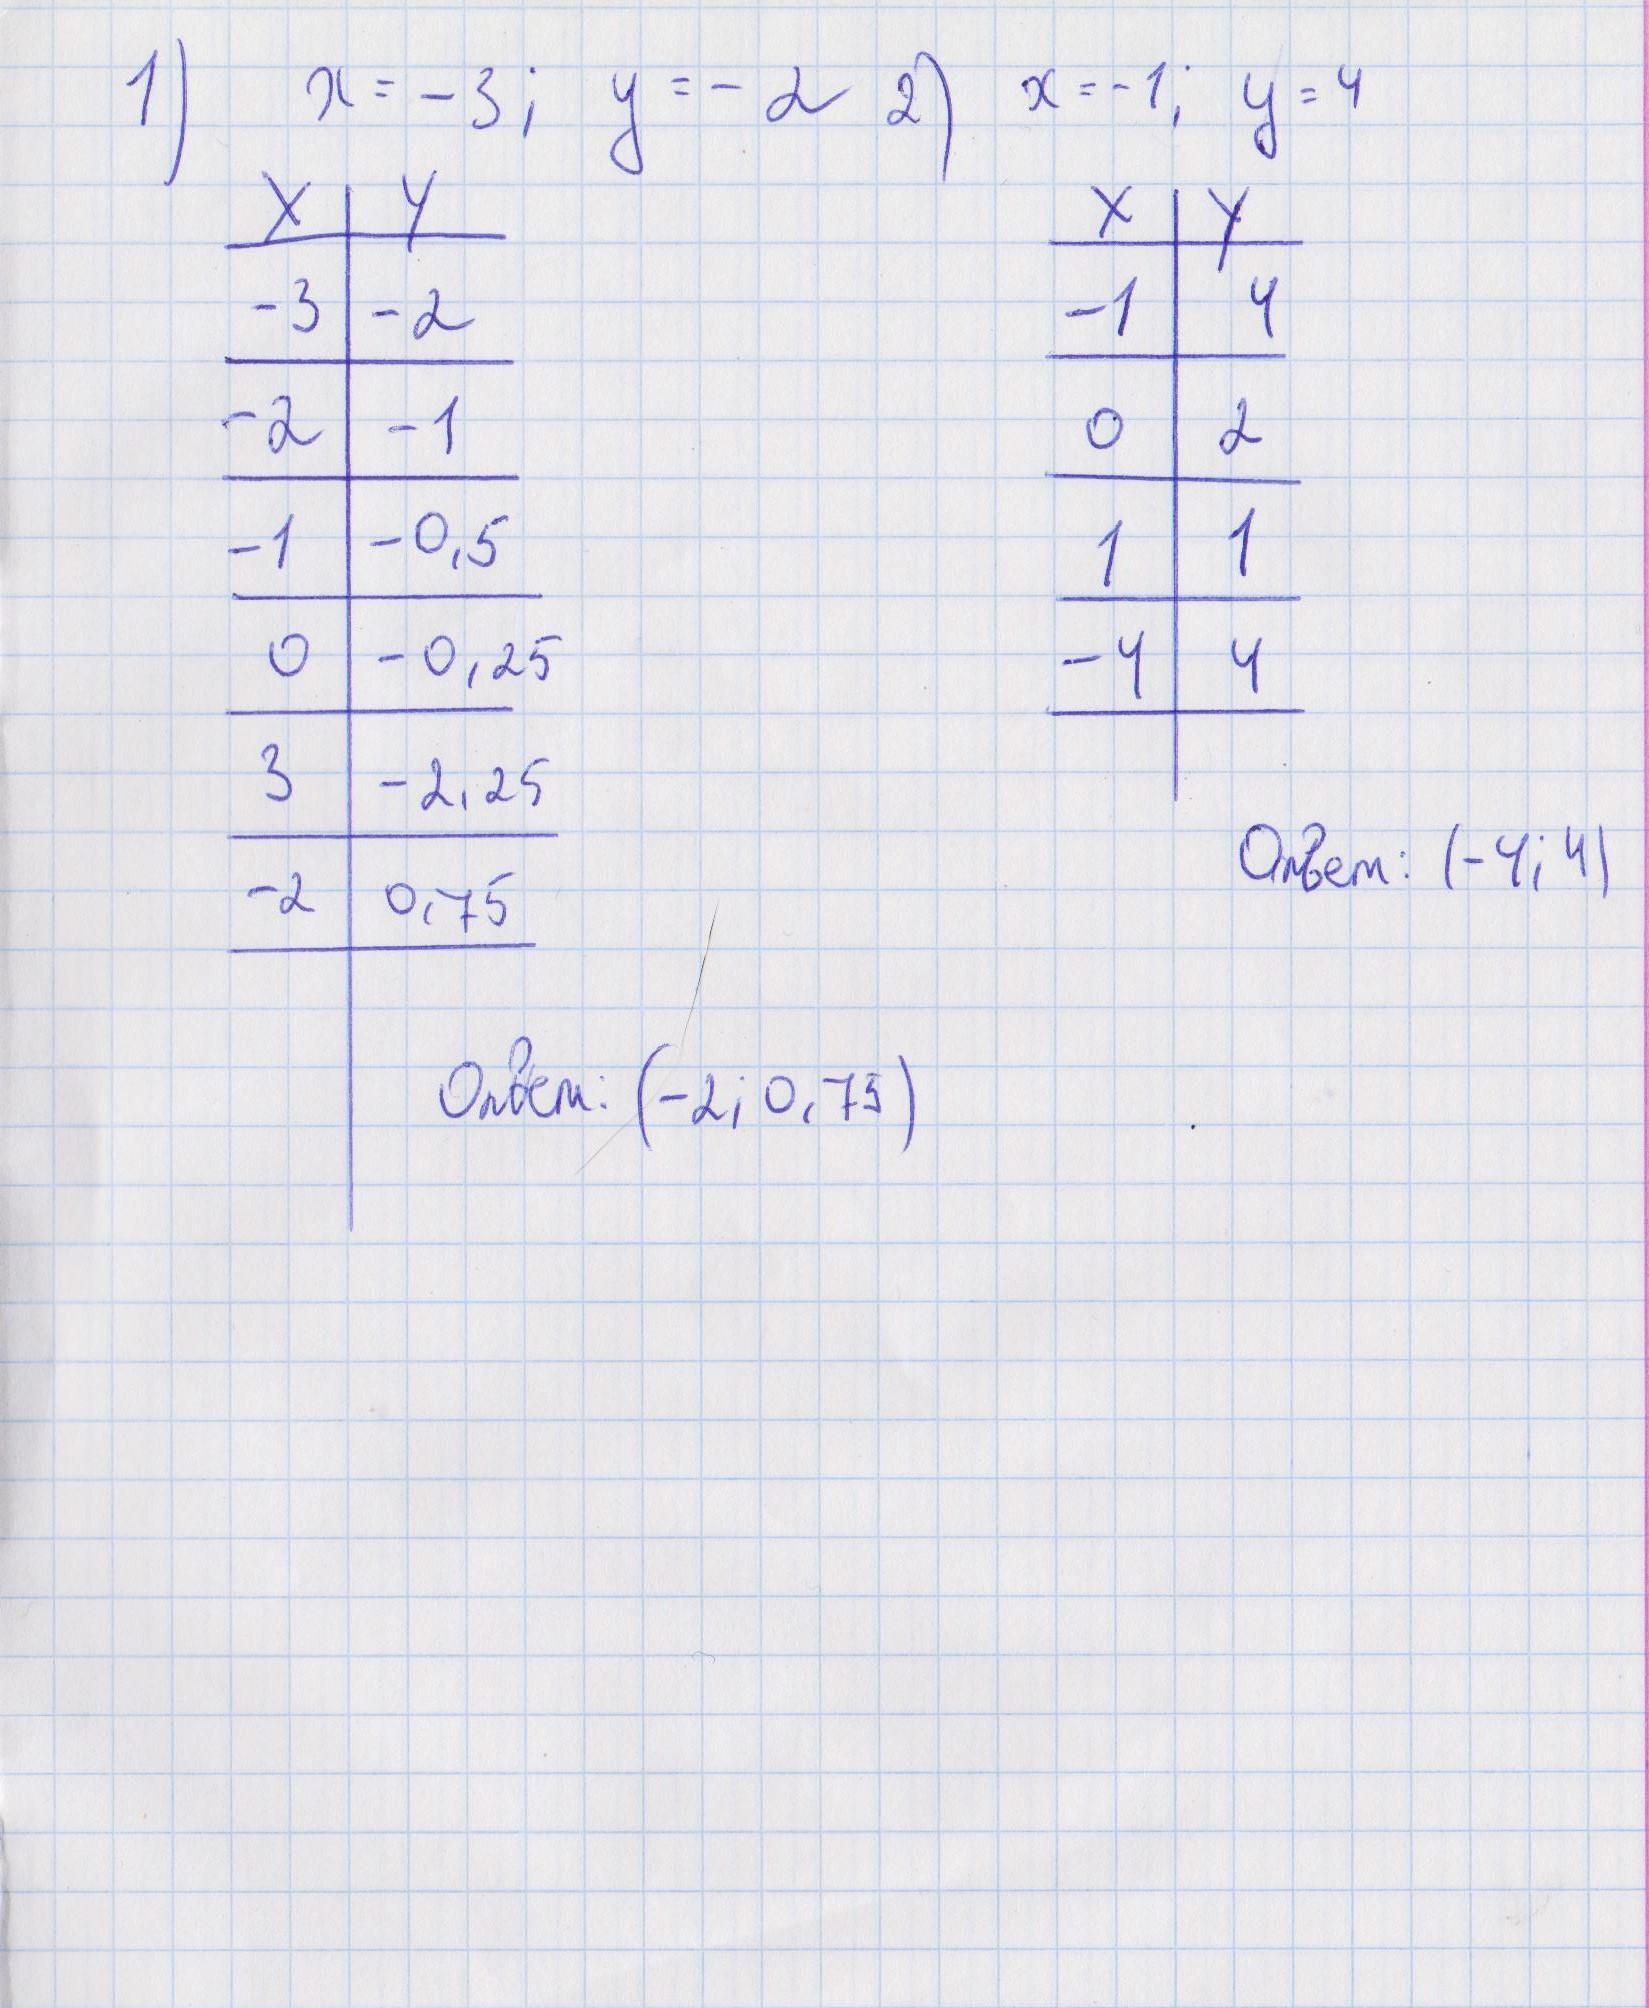 1) x = -3; y = -2 2) x = -1; y = 4
X Y
-3 -2
-2 -1
-1 -0,5
0 -0,25
3 -2,25
-2 0,75
Ответ: (-2; 0,75)
X Y
-1 4
0 2
1 1
-4 4
Ответ: (-4; 4)